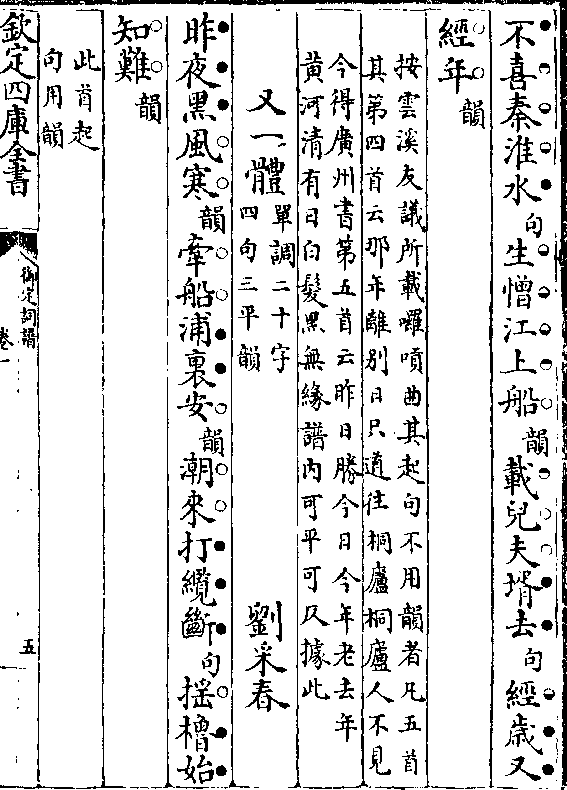 不喜秦淮水句生憎江上船韻載兒夫壻去句經歲又
經年韻
按雲溪友議所載囉嗊曲其起句不用韻者凡五首
其第四首云那年離別日只道往桐廬桐廬人不見
今得廣州書第五首云昨日勝今日今年老去年
黄河清有日白髮黑無緣譜內可平可仄據此
又一體單調二十字
四句三平韻
劉采春
昨夜黑風寒韻牽船浦裏安韻潮來打纜斷句搖櫓始
知難韻
此首起
句用韻
欽定四庫全書
御定詞譜
卷一
五